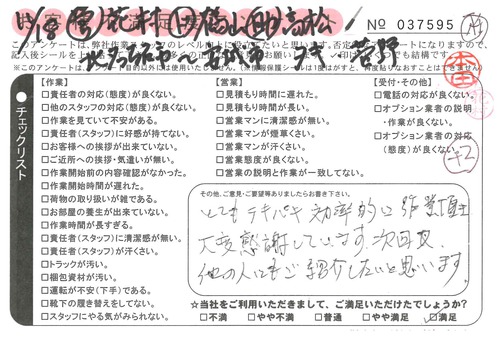 No 037595
このアンケートは、弊社作業
※このアンケート
チェックリスト
【作業】
□責任者の対応(態度)が良くない。
□他のスタッフの対応(態度)が良くない。
□作業を見ていて不安がある。
□責任者(スタッフ)に好感が持てない。
□お客様への挨拶が出来ていない。
□ご近所への挨拶・気遣いが無い。
□作業開始前の内容確認がなかった。
□作業開始時間が遅れた。
□荷物の取り扱いが雑である。
□お部屋の養生が出来ていない。
□作業時間が長すぎる。
□責任者(スタッフ)に清潔感が無い。
□責任者(スタッフ)が汗くさい。
□トラックが汚い。
□梱包資材が汚い。
□運転が不安(下手)である。
□靴下の履き替えをしてない。
□スタッフにやる気がみられない。
【営業】
□見積もり時間に遅れた。
□見積もり時間が長い。
□営業マンに清潔感が無い。
□営業マンが煙草くさい。
□営業マンが汗くさい。
□営業態度が良くない。
□営業の説明と作業が一致してない。
【受付・その他】
□電話の対応が良くない。
□オプション業者の説明
・作業が良くない。
□オプション業者の対応
(態度)が良くない。
その他、ご意見・ご要望等ありましたらお書き下さい。
とてもテキパキ効率的に作業頂き
大変感謝しています。次回又、
他の人にもご紹介したいと思います。
☆当社をご利用いただきまして、ご満足いただけたでしょうか?
□不満 □やや不満 □普通 □やや満足 ☑満足